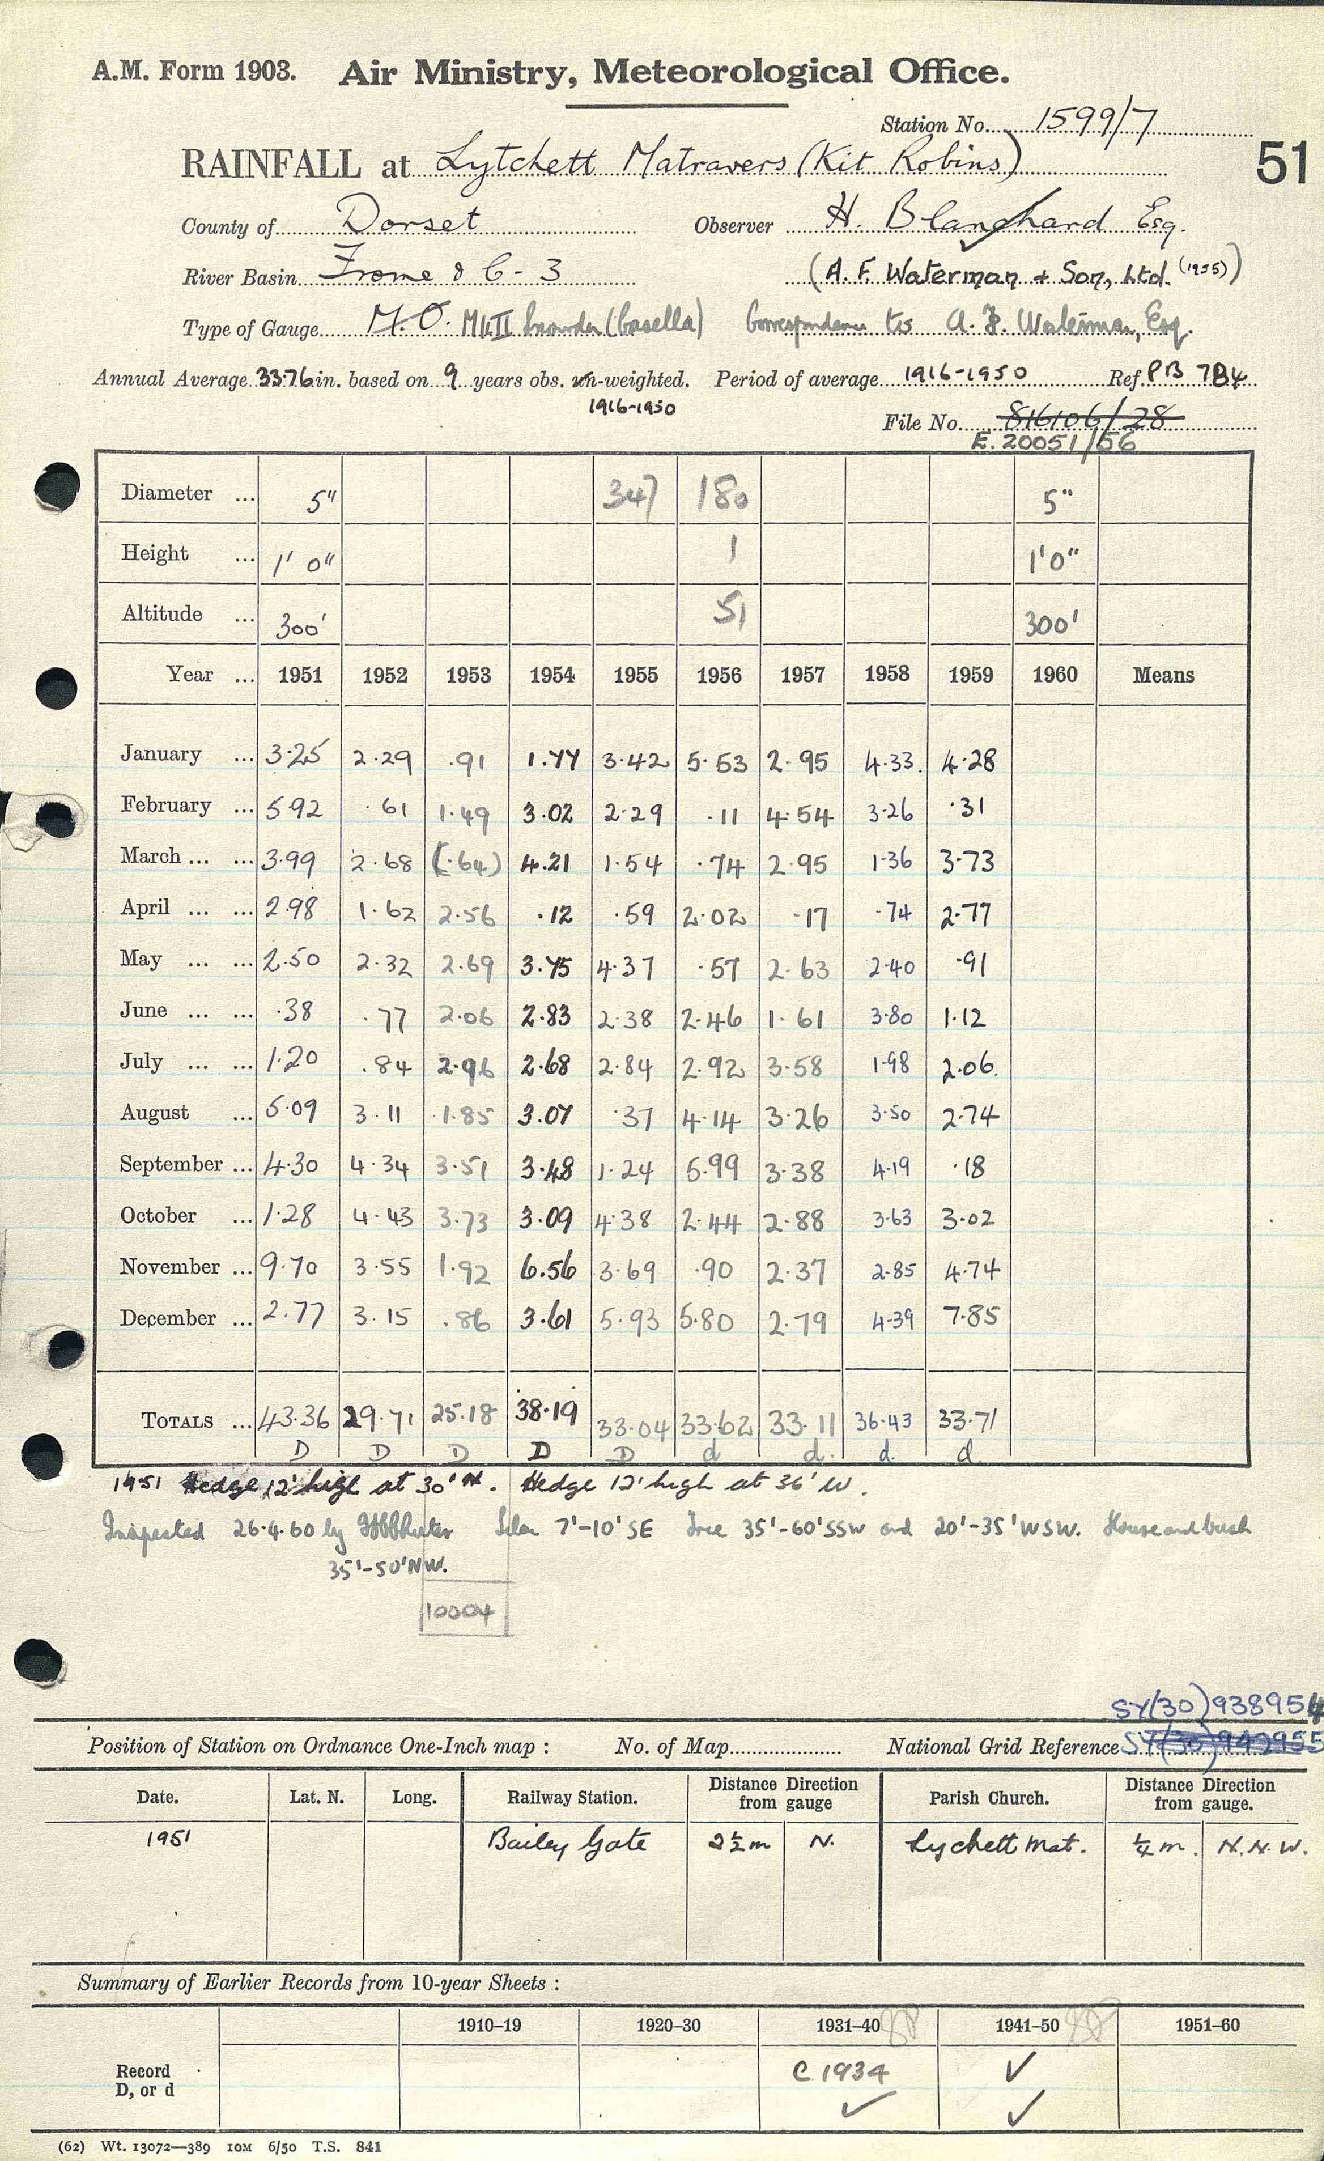 A.M. Form 1903. Air Ministry, Meteorological Office.
Station No. 1599/7
51
RAINFALL at Lytchett Matravers (Kit Robins)
County of Dorset Observer H. Blanchard Esq.
River Basin Frome & C - 3 (A.F. Waterman & Son, Ltd. (1955))
Type of Gauge M.O. Mk II Snowdon (Casella) Correspondence to A. F. Waterman, Esq.
Annual Average 33.76 in. based on 9 years obs. un-weighted. Period of average 1916-1950 Ref. PB 7B4
1916-1950
File No. 816106/28
E.20051/56
Diameter ... 5" 347 180 5"
Height ... 1' 0" 1 1'0"
Altitude ... 300' 51 300'
Year ... 1951 1952 1953 1954 1955 1956 1957 1958 1959 1960 Means
January ... 3.25 2.29 .91 1.77 3.42 5.53 2.95 4.33 4.28
February ... 5.92 .61 1.49 3.02 2.29 .11 4.54 3.26 .31
March ... ... 3.99 2.68 (.64) 4.21 1.54 .74 2.95 1.36 3.73
April ... ... 2.98 1.62 2.56 .12 .59 2.02 .17 .74 2.77
May ... ... 2.50 2.32 2.69 3.75 4.37 .57 2.63 2.40 .91
June ... ... .38 .77 2.06 2.83 2.38 2.46 1.61 3.80 1.12
July ... ... 1.20 .84 2.96 2.68 2.84 2.92 3.58 1.98 2.06
August ... 5.09 3.11 1.85 3.07 .37 4.14 3.26 3.50 2.74
September ... 4.30 4.34 3.51 3.48 1.24 5.99 3.38 4.19 .18
October ... 1.28 4.43 3.73 3.09 4.38 2.44 2.88 3.63 3.02
November ... 9.70 3.55 1.92 6.56 3.69 .90 2.37 2.85 4.74
December ... 2.77 3.15 .86 3.61 5.93 5.80 2.79 4.39 7.85
TOTALS ... 43.36 29.71 25.18 38.19 33.04 33.62 33.11 36.43 33.71
D D D D D d d. d. d
1951 Hedge 12' high at 30' N. Hedge 12' high at 36' W.
Inspected 26.4.60 by 7'-10' SE Tree 35'-60' SSW and 20'-35' WSW. House and bush
35'-50' NW.
10004
SY(30)938954
Position of Station on Ordnance One-Inch map : No. of Map National Grid Reference SY(30)942955
Date. Lat. N. Long. Railway Station. Distance Direction from gauge Parish Church. Distance Direction from gauge.
1951 Bailey Gate 2½ m N. Lychett Mat. ¼ m. N.N.W.
Summary of Earlier Records from 10-year Sheets :
1910–19 1920–30 1931–40 1941–50 1951–60
Record D, or d C 1934 ✓
✓ ✓
(62) Wt. 13072—389 10M 6/50 T.S. 841